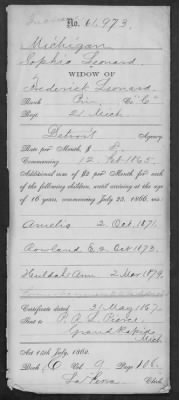 No. 61,973.
Michigan
Sophia Leonard
WIDOW OF
Frederick Leonard
Rank Pvt. Co. C
Regt. 21 Mich
Detroit Agency.
Rate per Month, $ 8.
Commencing 12, Feb 1865.
Additional sum of $2 per Month for each
of the following children, until arriving at the age
of 16 years, commencing July 25, 1866, viz:
Amelia 2. Oct. 1871.
Rowland E. 2 Oct 1873.
Huldah Ann 2 Mar. 1879.
Certificate dated 31 May 1867
Sent to P. A. L. Pierce,
Grand Rapids
Mich.
Act 14th July, 1862.
Book C Vol. 9 Page 106.
Clerk.